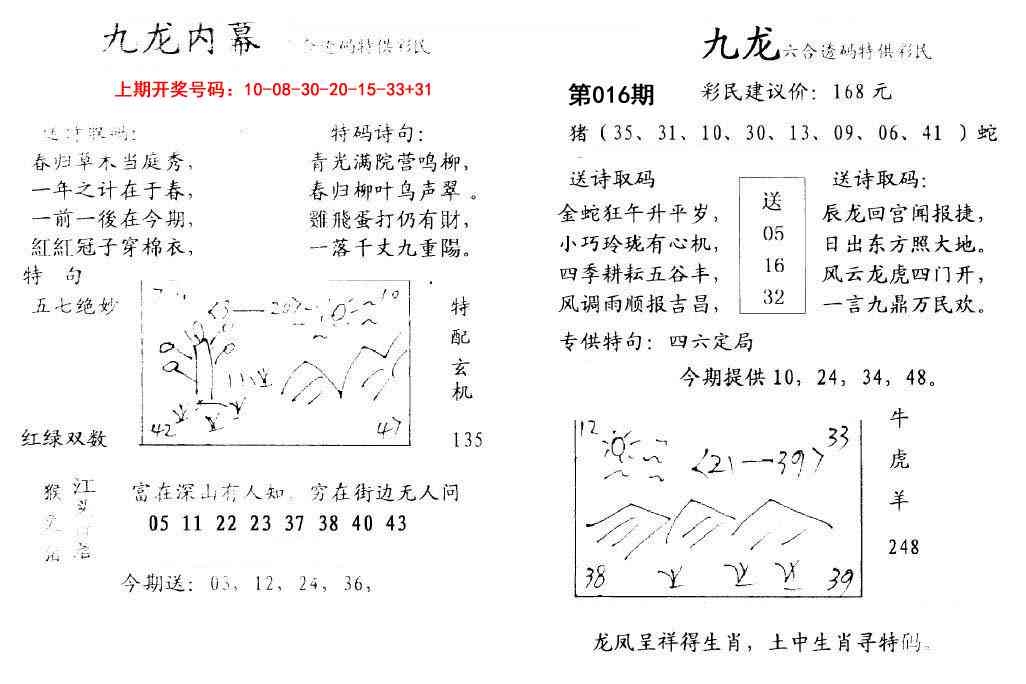 九龙内幕 合透码特供彩民
上期开奖号码：10-08-30-20-15-33+31
送诗取码：
春归草木当庭秀，
一年之计在于春，
一前一後在今期，
紅紅冠子穿棉衣，
特码诗句：
青光满院营鸣柳，
春归柳叶鸟声翠。
雞飛蛋打仍有財，
一落千丈九重陽。
特 句
五七绝妙
红绿双数
10
42
47
特
配
玄
机
135
猴
江
富在深山有人知。穷在街边无人问
05 11 22 23 37 38 40 43
今期送：03，12，24，36，
九龙六合透码特供彩民
第016期 彩民建议价：168元
猪（35、31、10、30、13、09、06、41 ）蛇
送诗取码
金蛇狂午升平岁，
小巧玲珑有心机，
四季耕耘五谷丰，
风调雨顺报吉昌，
送
05
16
32
送诗取码：
辰龙回宫闻报捷，
日出东方照大地。
风云龙虎四门开，
一言九鼎万民欢。
专供特句：四六定局
今期提供10，24，34，48。
12
33
〈21—39〉
38
39
牛
虎
羊
248
龙凤呈祥得生肖，土中生肖寻特码。